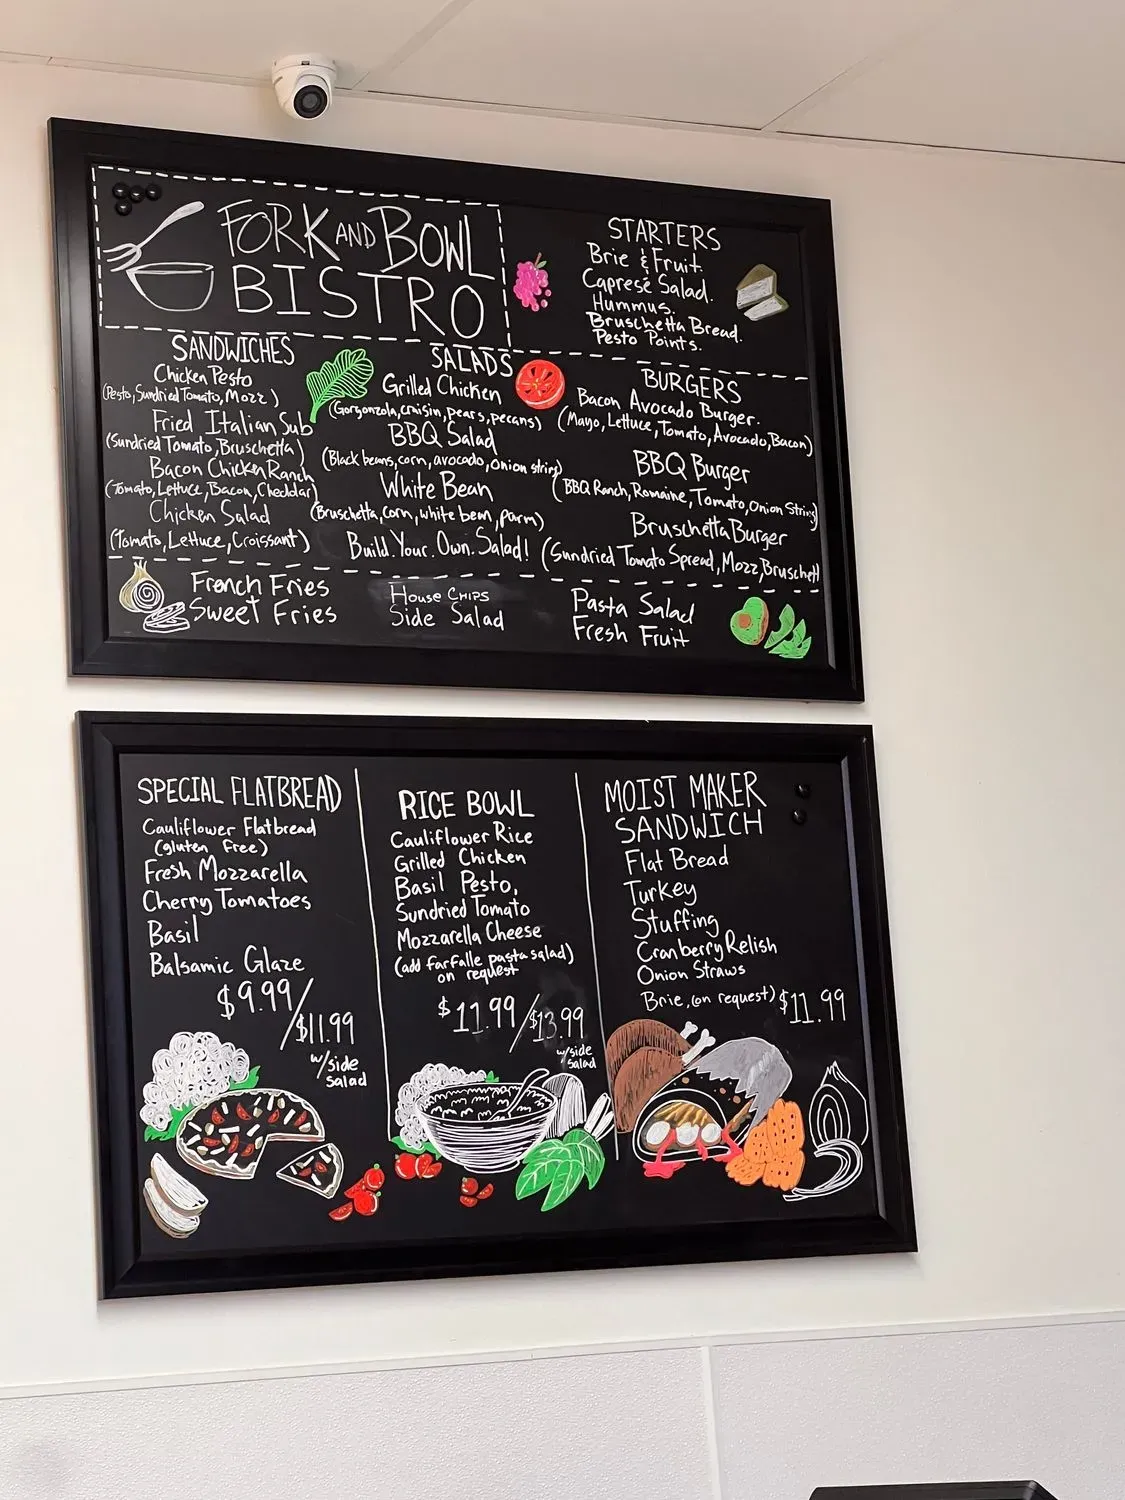 FORK AND BOWL
BISTRO
STARTERS
Brie & Fruit.
Caprese Salad.
Hummus.
Bruschetta Bread.
Pesto Points.
SANDWICHES
Chicken Pesto
(Pesto, Sundried Tomato, Mozz)
Fried Italian Sub
(Sundried Tomato, Bruschetta)
Bacon Chicken Ranch
(Tomato, Lettuce, Bacon, Cheddar)
Chicken Salad
(Tomato, Lettuce, Croissant)
SALADS
Grilled Chicken
(Gorgonzola, craisin, pears, pecans)
BBQ Salad
(Black beans, corn, avocado, onion string)
White Bean
(Bruschetta, corn, white bean, parm)
Build. Your. Own. Salad!
BURGERS
Bacon Avocado Burger.
(Mayo, Lettuce, Tomato, Avocado, Bacon)
BBQ Burger
(BBQ Ranch, Romaine, Tomato, Onion String)
Bruschetta Burger
(Sundried Tomato Spread, Mozz, Bruschett
French Fries
Sweet Fries
House CHIPS
Side Salad
Pasta Salad
Fresh Fruit
SPECIAL FLATBREAD
Cauliflower Flatbread
(gluten free)
Fresh Mozzarella
Cherry Tomatoes
Basil
Balsamic Glaze
$9.99/
$11.99
w/side
salad
RICE BOWL
Cauliflower Rice
Grilled Chicken
Basil Pesto,
Sundried Tomato
Mozzarella Cheese
(add farfalle pasta salad)
on request
$11.99/$13.99
w/side
salad
MOIST MAKER
SANDWICH
Flat Bread
Turkey
Stuffing
Cranberry Relish
Onion Straws
Brie, (on request) $11.99